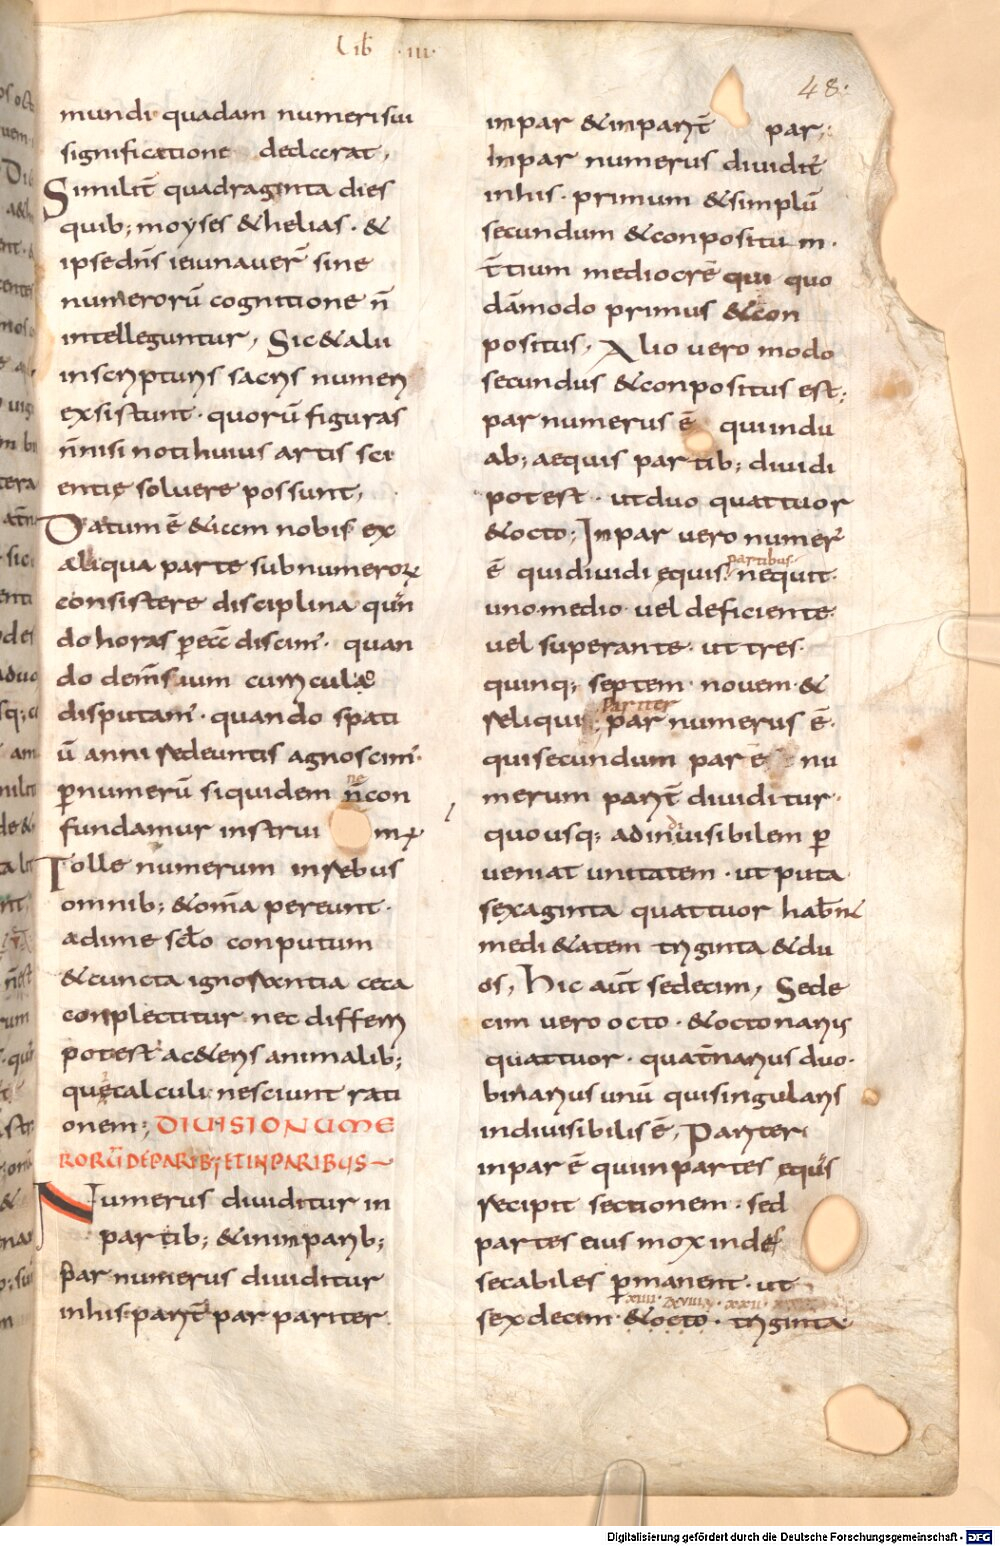 Lib̄ ·iii·
48·
mundi quadam numeri sui
significatione dedecrat,
Similit̄ quadraginta dies
quib; moyses & helias · &
ipse dn̄s ieiunauer̄ sine
numerorū cognitione n̄
intelleguntur, Sic & alii
in scripturis sacris numeri
exsistunt · quorū figuras
n̄ nisi noti huius artis sci
entię soluere possunt,
Datum ē & iccm nobis ex
aliqua parte sub numeroꝝ
consistere disciplina qun̄
do horas p ecc̄ discim̄ · quan
do dem̄sium curriculę
disputam̄ · quando spati
ū anni redeuntis agnoscim̄·
ꝑ numerū siquidem n̄ con
ne
fundamur instrui mꝝ
Tolle numerum in rebus
omnib; & om̄a pereunt ·
adime sc̄lo conputum
& cuncta ignorxntia ceca
conplectitur nec differri
potest a c&eris animalib;
quę calculi nesciunt rati
onem; DIUISIO NUME
RORŪ DE PARIB; ET INPARIBUS
Numerus diuiditur in
partib; & in inparib;
par numerus diuiditur
in his · parit̄ par pariter
inpar & inparit̄ par;
Inpar numerus diuidit̄
in his · primum & simplū
secundum & conpositum ·
t̄tium mediocrē qui quo
dāmodo primus & con
positus, Alio uero modo
secundus & conpositus est;
par numerus ē qui in du
ab; aequis partib; diuidi
potest · ut duo quattuor
& octo; Inpar uero numer̄
partibus
ē qui diuidi ęquis nequit ·
uno medio uel deficiente
uel superante · ut tres·
quinq; septem · nouem · &
pariter
reliqui; par numerus ē·
qui secundum par ē nu
merum parit̄ diuiditur ·
di
quousq; ad inuisibilem ꝑ
ueniat unitatem · ut puta
sexaginta quattuor hab̄n̄t
medi&atem triginta & du
os, hic aūt sedecim, Sede
cim uero octo · & octonarius
quattuor · quat̄narius duo·
binarius unū qui singularis
indiuisibilis ē, Pariter
inpar ē qui in partes ęquas
recipit sectionem · sed
partes eius mox indes
secabiles ꝑmanent · ut
xiiii xviiii · xxii ·
sex decim · & octo · triginta
Digitalisierung gefördert durch die Deutsche Forschungsgemeinschaft · DFG